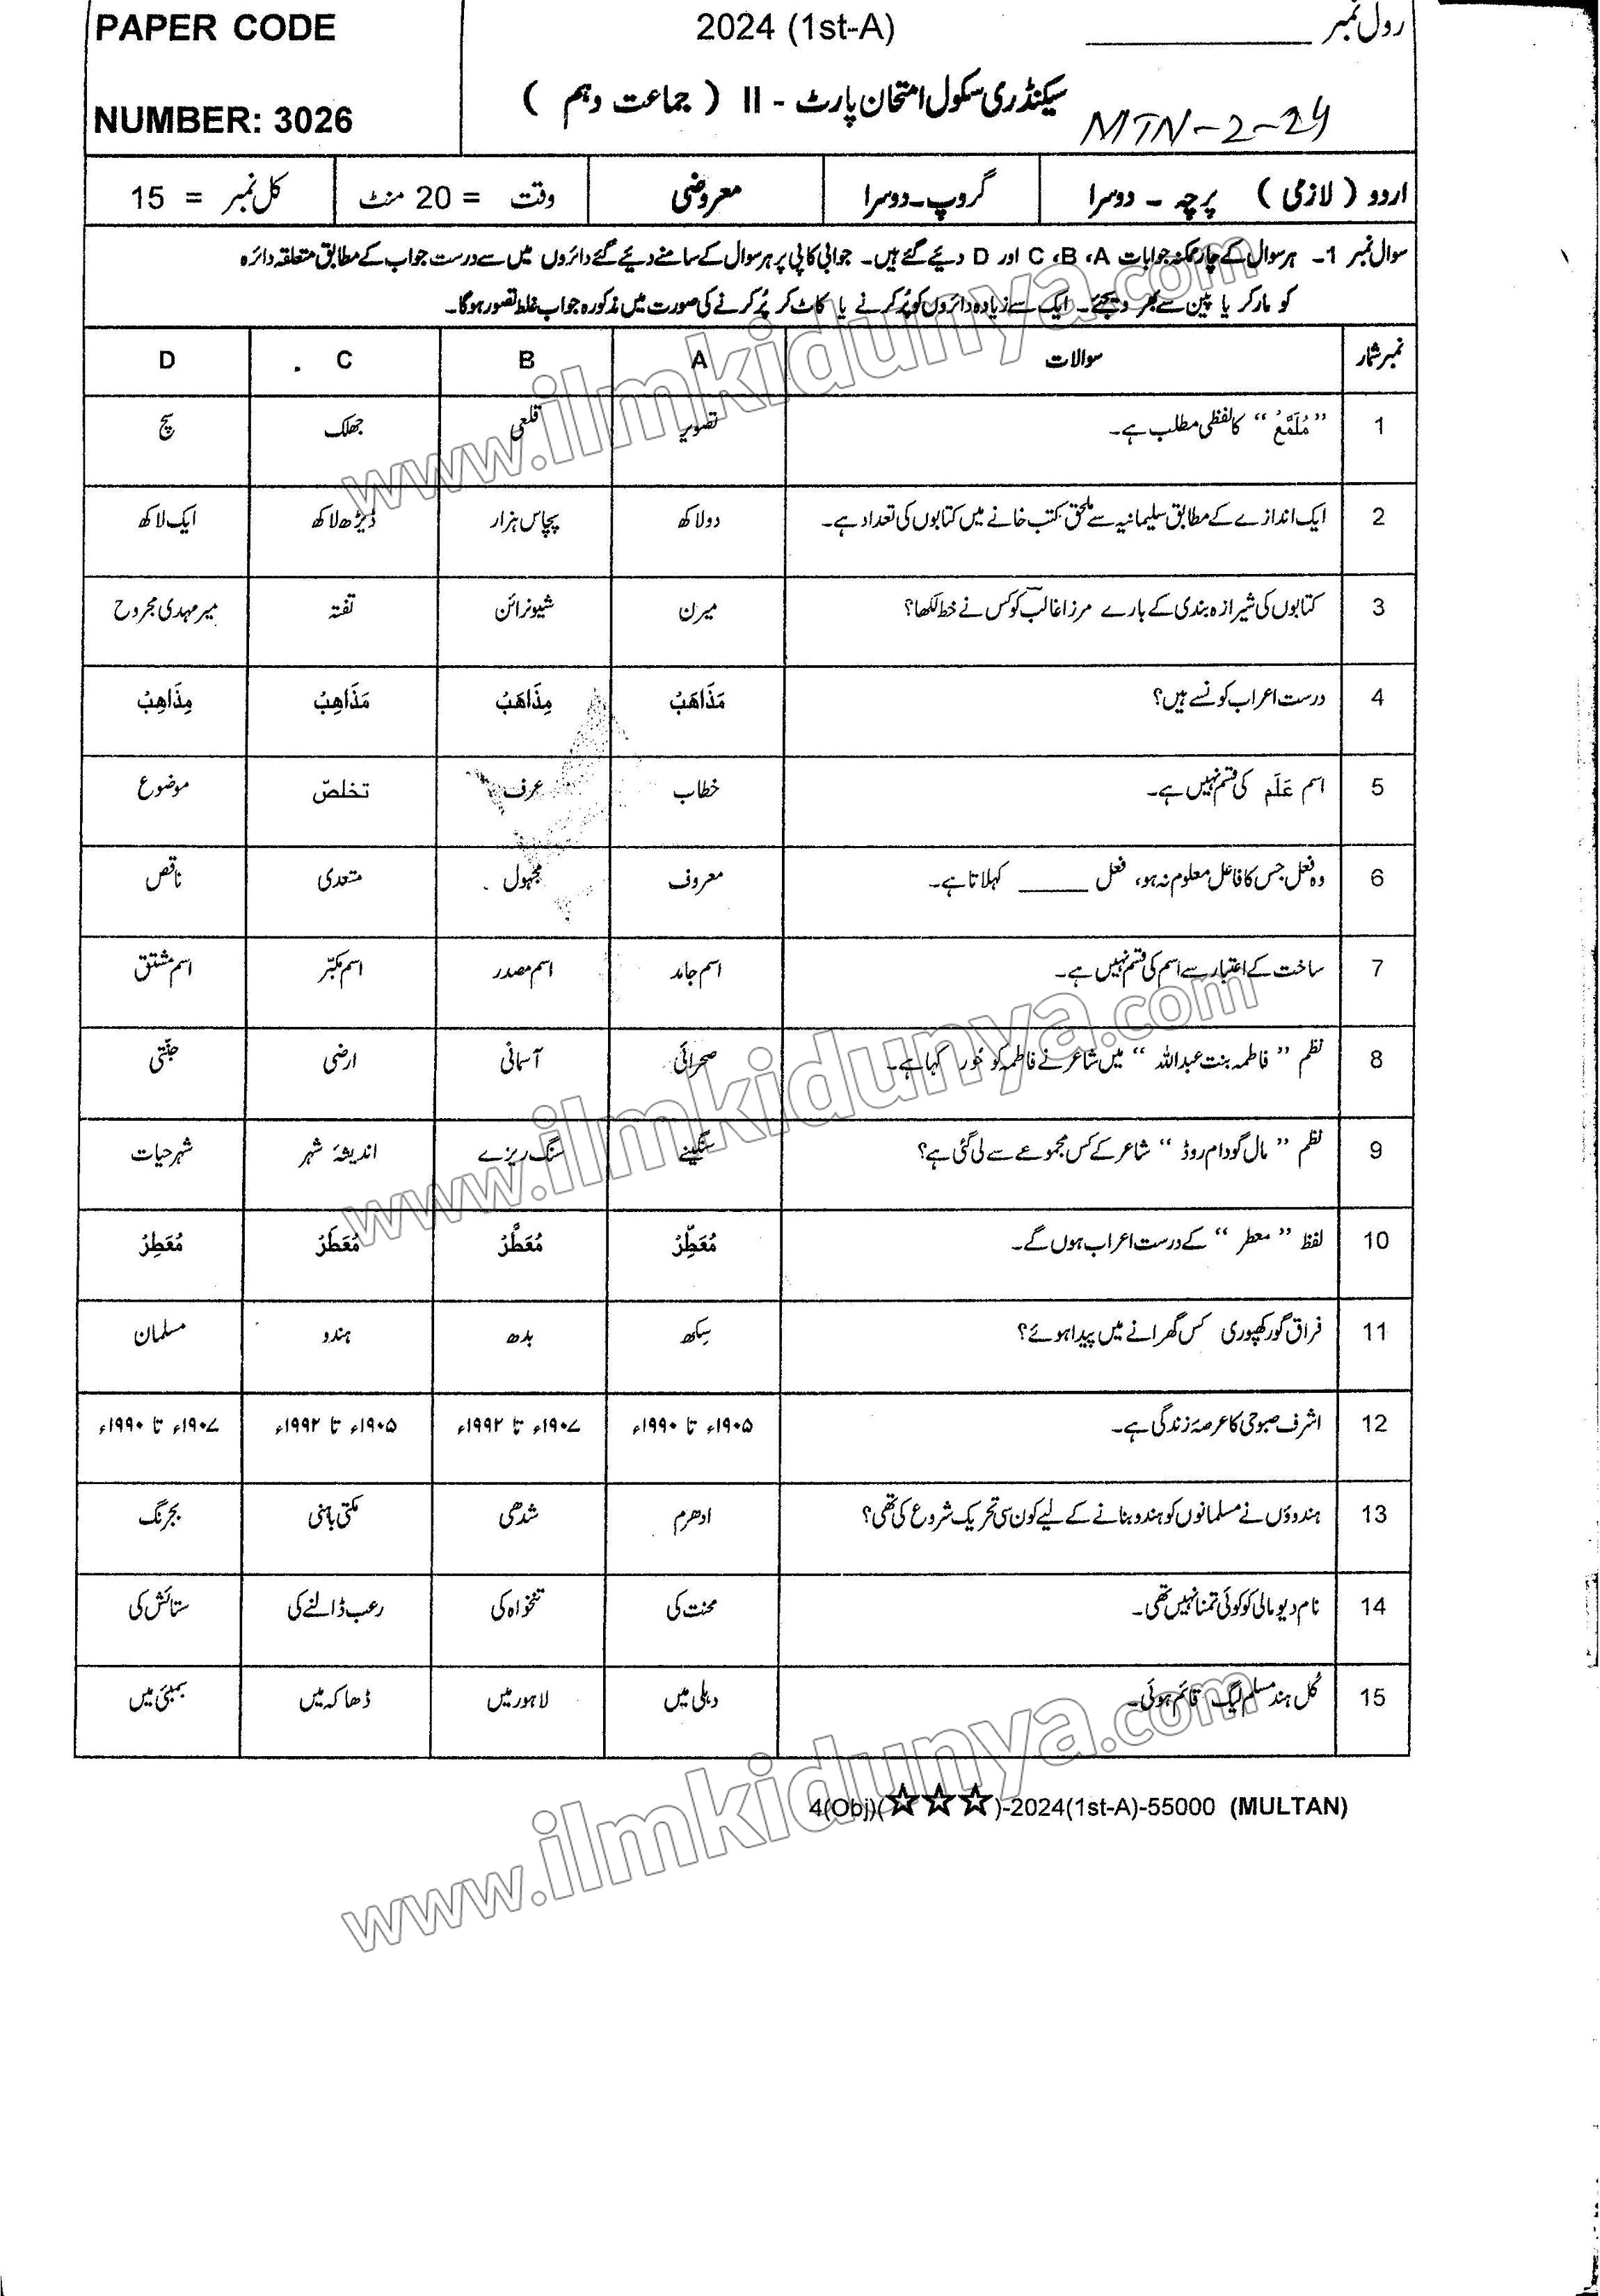 PAPER CODE
2024 (1st-A)
رول نمبر
NUMBER: 3026
سیکنڈری سکول امتحان پارٹ - II ( جماعت دہم )
MTN-2-24
اردو ( لازمی ) پرچہ - دوسرا
گروپ-دوسرا
معروضی
وقت = 20 منٹ
کل نمبر = 15
سوال نمبر 1- ہر سوال کے چار ممکنہ جوابات A، B، C اور D دیئے گئے ہیں۔ جوابی کاپی پر ہر سوال کے سامنے دیئے گئے دائروں میں سے درست جواب کے مطابق متعلقہ دائرہ
کو مارکر یا پین سے بھر دیجئے۔ ایک سے زیادہ دائروں کو پُر کرنے یا کاٹ کر پُر کرنے کی صورت میں مذکورہ جواب غلط تصور ہوگا۔
نمبر شمار سوالات A B C D
1 ”مُلَمَّعْ“ کا لفظی مطلب ہے۔ تصویر قلعی جھلک سچ
2 ایک اندازے کے مطابق سلیمانیہ سے ملحق کتب خانے میں کتابوں کی تعداد ہے۔ دو لاکھ پچاس ہزار ڈیڑھ لاکھ ایک لاکھ
3 کتابوں کی شیرازہ بندی کے بارے مرزا غالب کو کس نے خط لکھا؟ میرن شیونرائن تفتہ میر مہدی مجروح
4 درست اعراب کونسے ہیں؟ مَذَاهَبْ مِذَاهَبْ مَذَاهِبْ مِذَاهِبْ
5 اسم عَلَم کی قسم نہیں ہے۔ خطاب عرف تخلصّ موضوع
6 وہ فعل جس کا فاعل معلوم نہ ہو، فعل ______ کہلاتا ہے۔ معروف مجہول متعدی ناقص
7 ساخت کے اعتبار سے اسم کی قسم نہیں ہے۔ اسم جامد اسم مصدر اسم مکبّر اسم مشتق
8 نظم ”فاطمہ بنت عبداللہ“ میں شاعر نے فاطمہ کو حُور کہا ہے۔ صحرائی آسمانی ارضی جنّتی
9 نظم ”مال گودام روڈ“ شاعر کے کس مجموعے سے لی گئی ہے؟ سنگینے سنگ ریزے اندیشۂ شہر شہر حیات
10 لفظ ”معطر“ کے درست اعراب ہوں گے۔ مُعَطِّرْ مُعَطَّرْ مُعَطَرْ مُعَطِرْ
11 فراق گورکھپوری کس گھرانے میں پیدا ہوئے؟ سِکھ بدھ ہندو مسلمان
12 اشرف صبوحی کا عرصۂ زندگی ہے۔ ۱۹۰۵ء تا ۱۹۹۰ء ۱۹۰۷ء تا ۱۹۹۲ء ۱۹۰۵ء تا ۱۹۹۲ء ۱۹۰۷ء تا ۱۹۹۰ء
13 ہندوؤں نے مسلمانوں کو ہندو بنانے کے لیے کون سی تحریک شروع کی تھی؟ ادھرم شدھی مکتی باہنی بجرنگ
14 نام دیو مالی کو کوئی تمنا نہیں تھی۔ محنت کی تنخواہ کی رعب ڈالنے کی ستائش کی
15 کُل ہند مسلم لیگ قائم ہوئی۔ دہلی میں لاہور میں ڈھاکہ میں بمبئی میں
4(Obj)(☆☆☆)-2024(1st-A)-55000 (MULTAN)
www.ilmkidunya.com
www.ilmkidunya.com
www.ilmkidunya.com